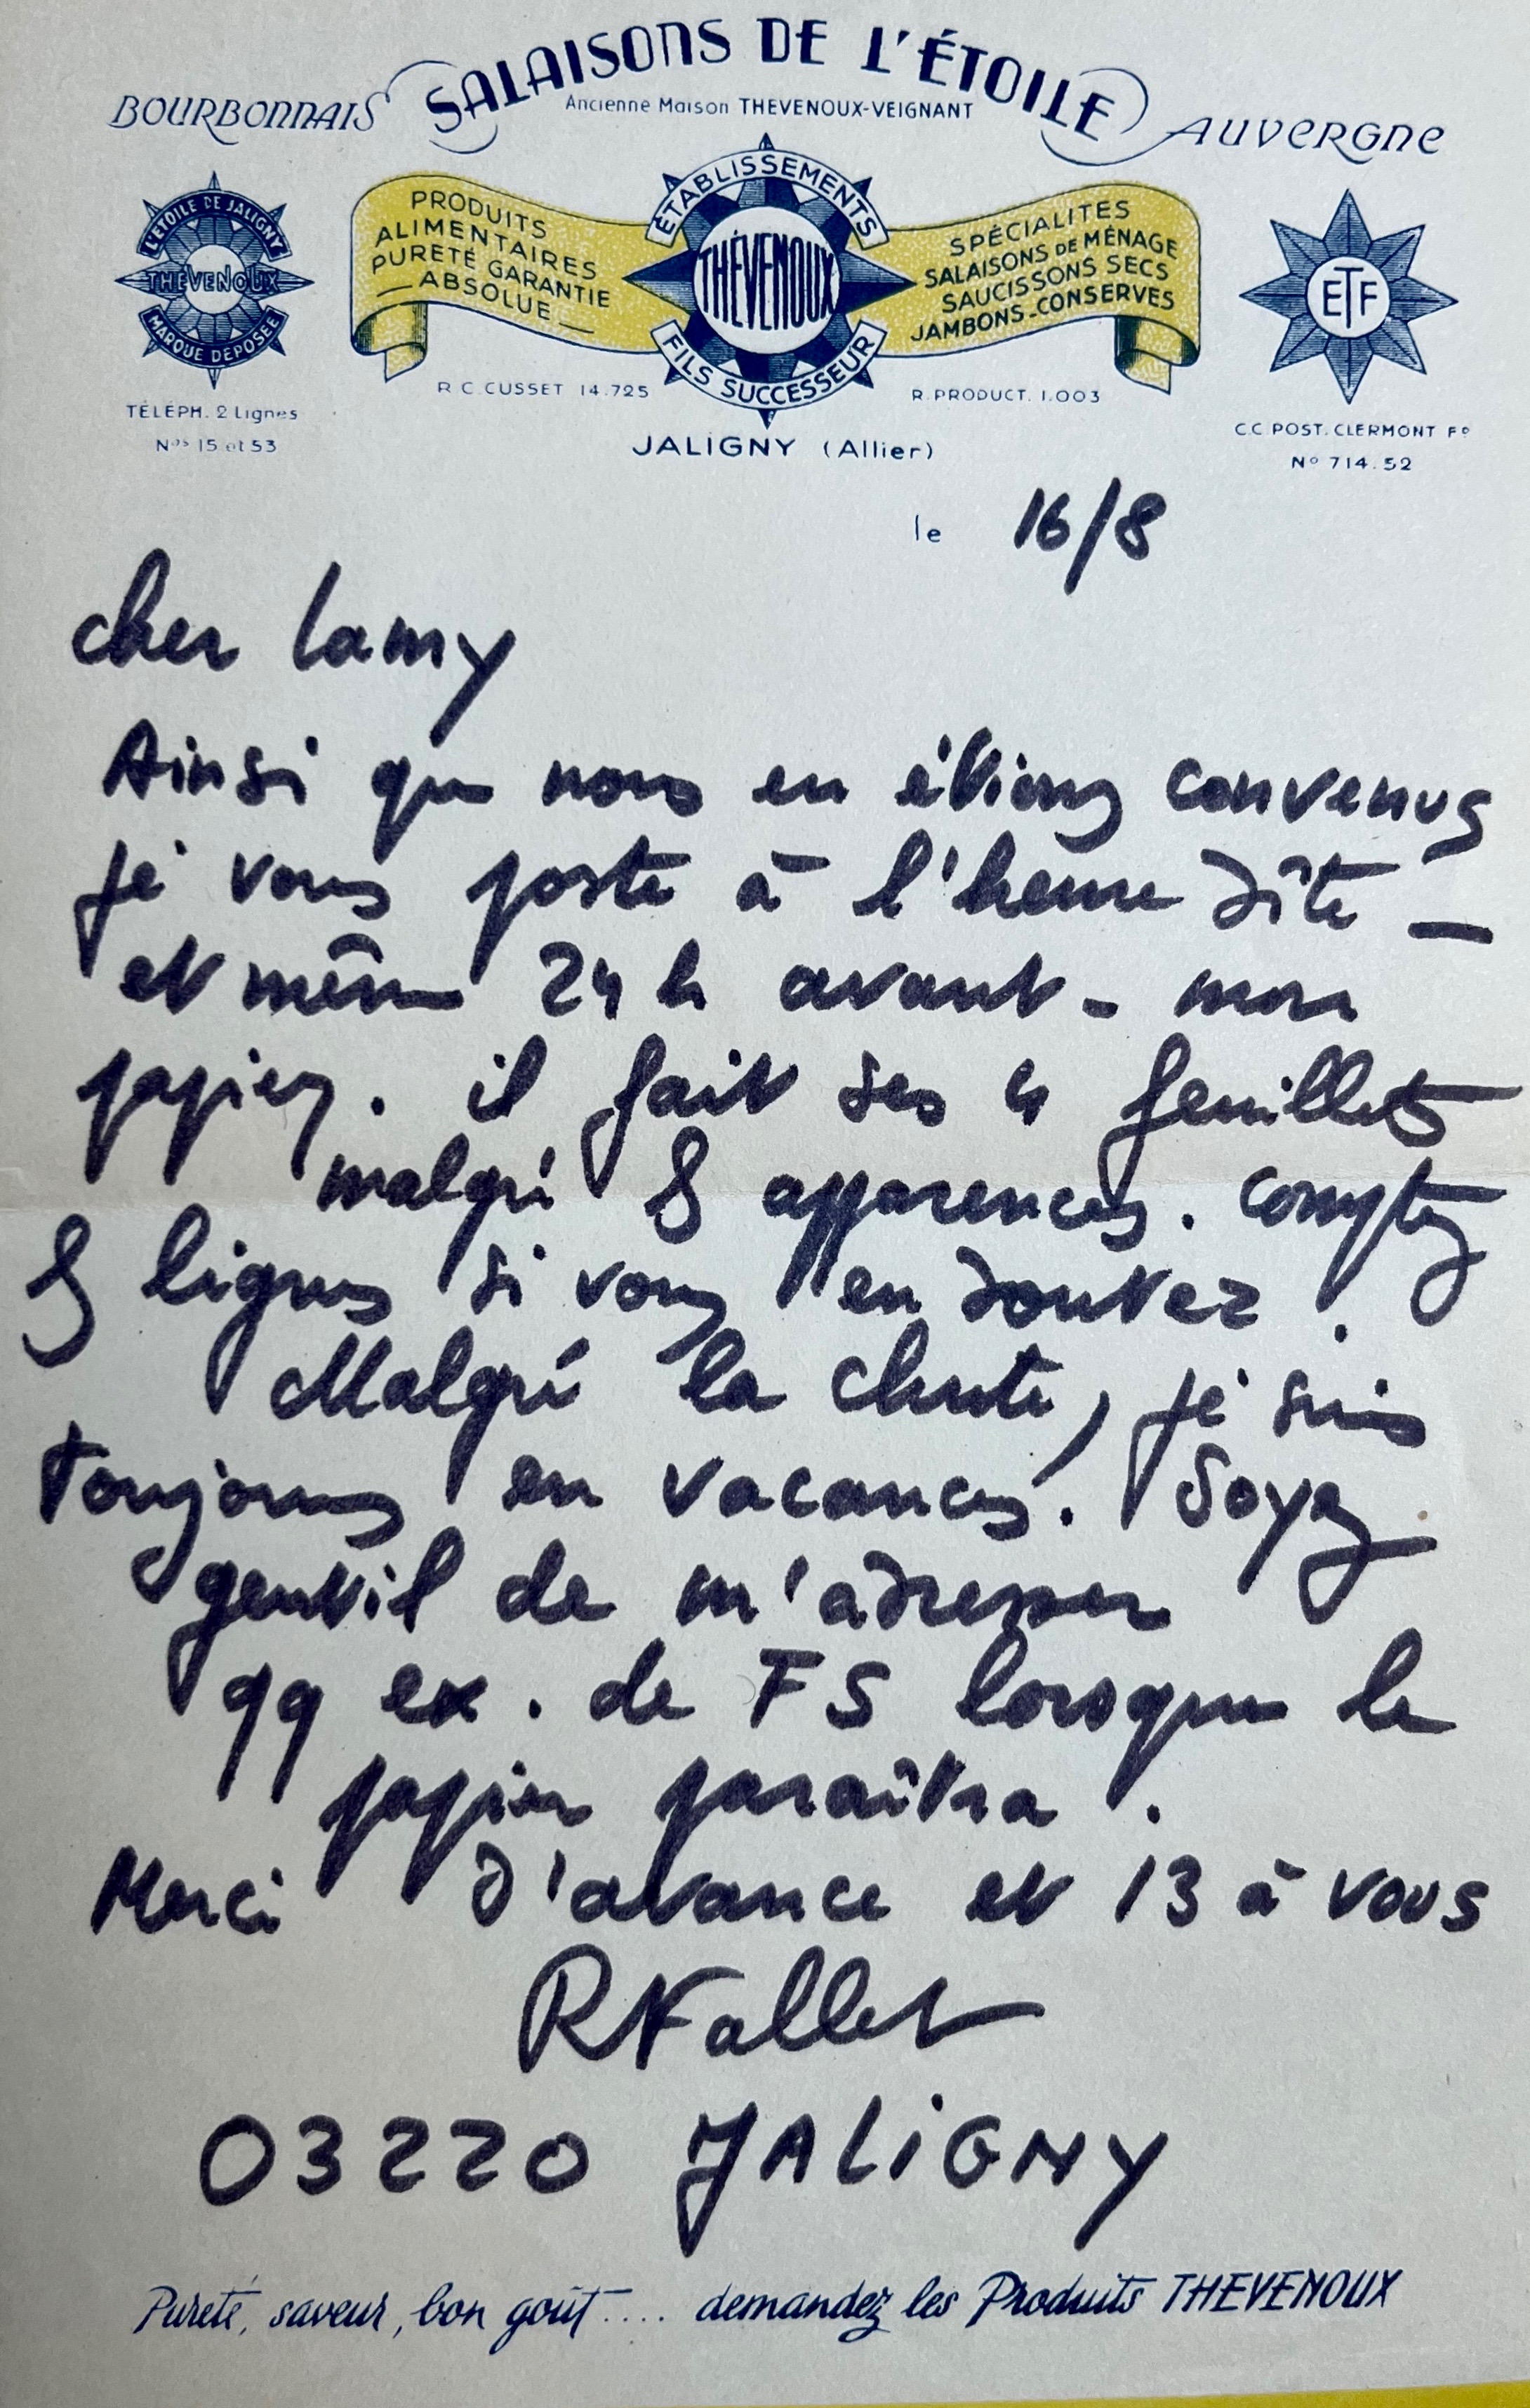 SALAISONS DE L'ÉTOILE
BOURBONNAIS
Ancienne Maison THEVENOUX-VEIGNANT
AUVERGNE
L'ÉTOILE DE JALIGNY
THÉVENOUX
MARQUE DÉPOSÉE
TÉLÉPH. 2 Lignes
Nos 15 et 53
PRODUITS
ALIMENTAIRES
PURETÉ GARANTIE
— ABSOLUE —
R.C. CUSSET 14.725
ÉTABLISSEMENTS
THÉVENOUX
FILS SUCCESSEUR
JALIGNY (Allier)
SPÉCIALITÉS
SALAISONS DE MÉNAGE
SAUCISSONS SECS
JAMBONS-CONSERVES
R. PRODUCT. 1.003
ETF
C.C. POST. CLERMONT Fd
No 714.52
le 16/8
cher Lamy
Ainsi que nous en étions convenus
je vous poste à l'heure dîte —
et même 24 h avant - mon
papier. il fait ses 4 feuillets
malgré § apparences. comptez
§ lignes si vous en doutez.
Malgré la chute, je suis
toujours en vacances. Soyez
gentil de m'adresser
qq ex. de FS lorsque le
papier paraîtra.
Merci d'avance et 13 à vous
R Fallet
03220 JALIGNY
Pureté, saveur, bon goût.... demandez les Produits THEVENOUX